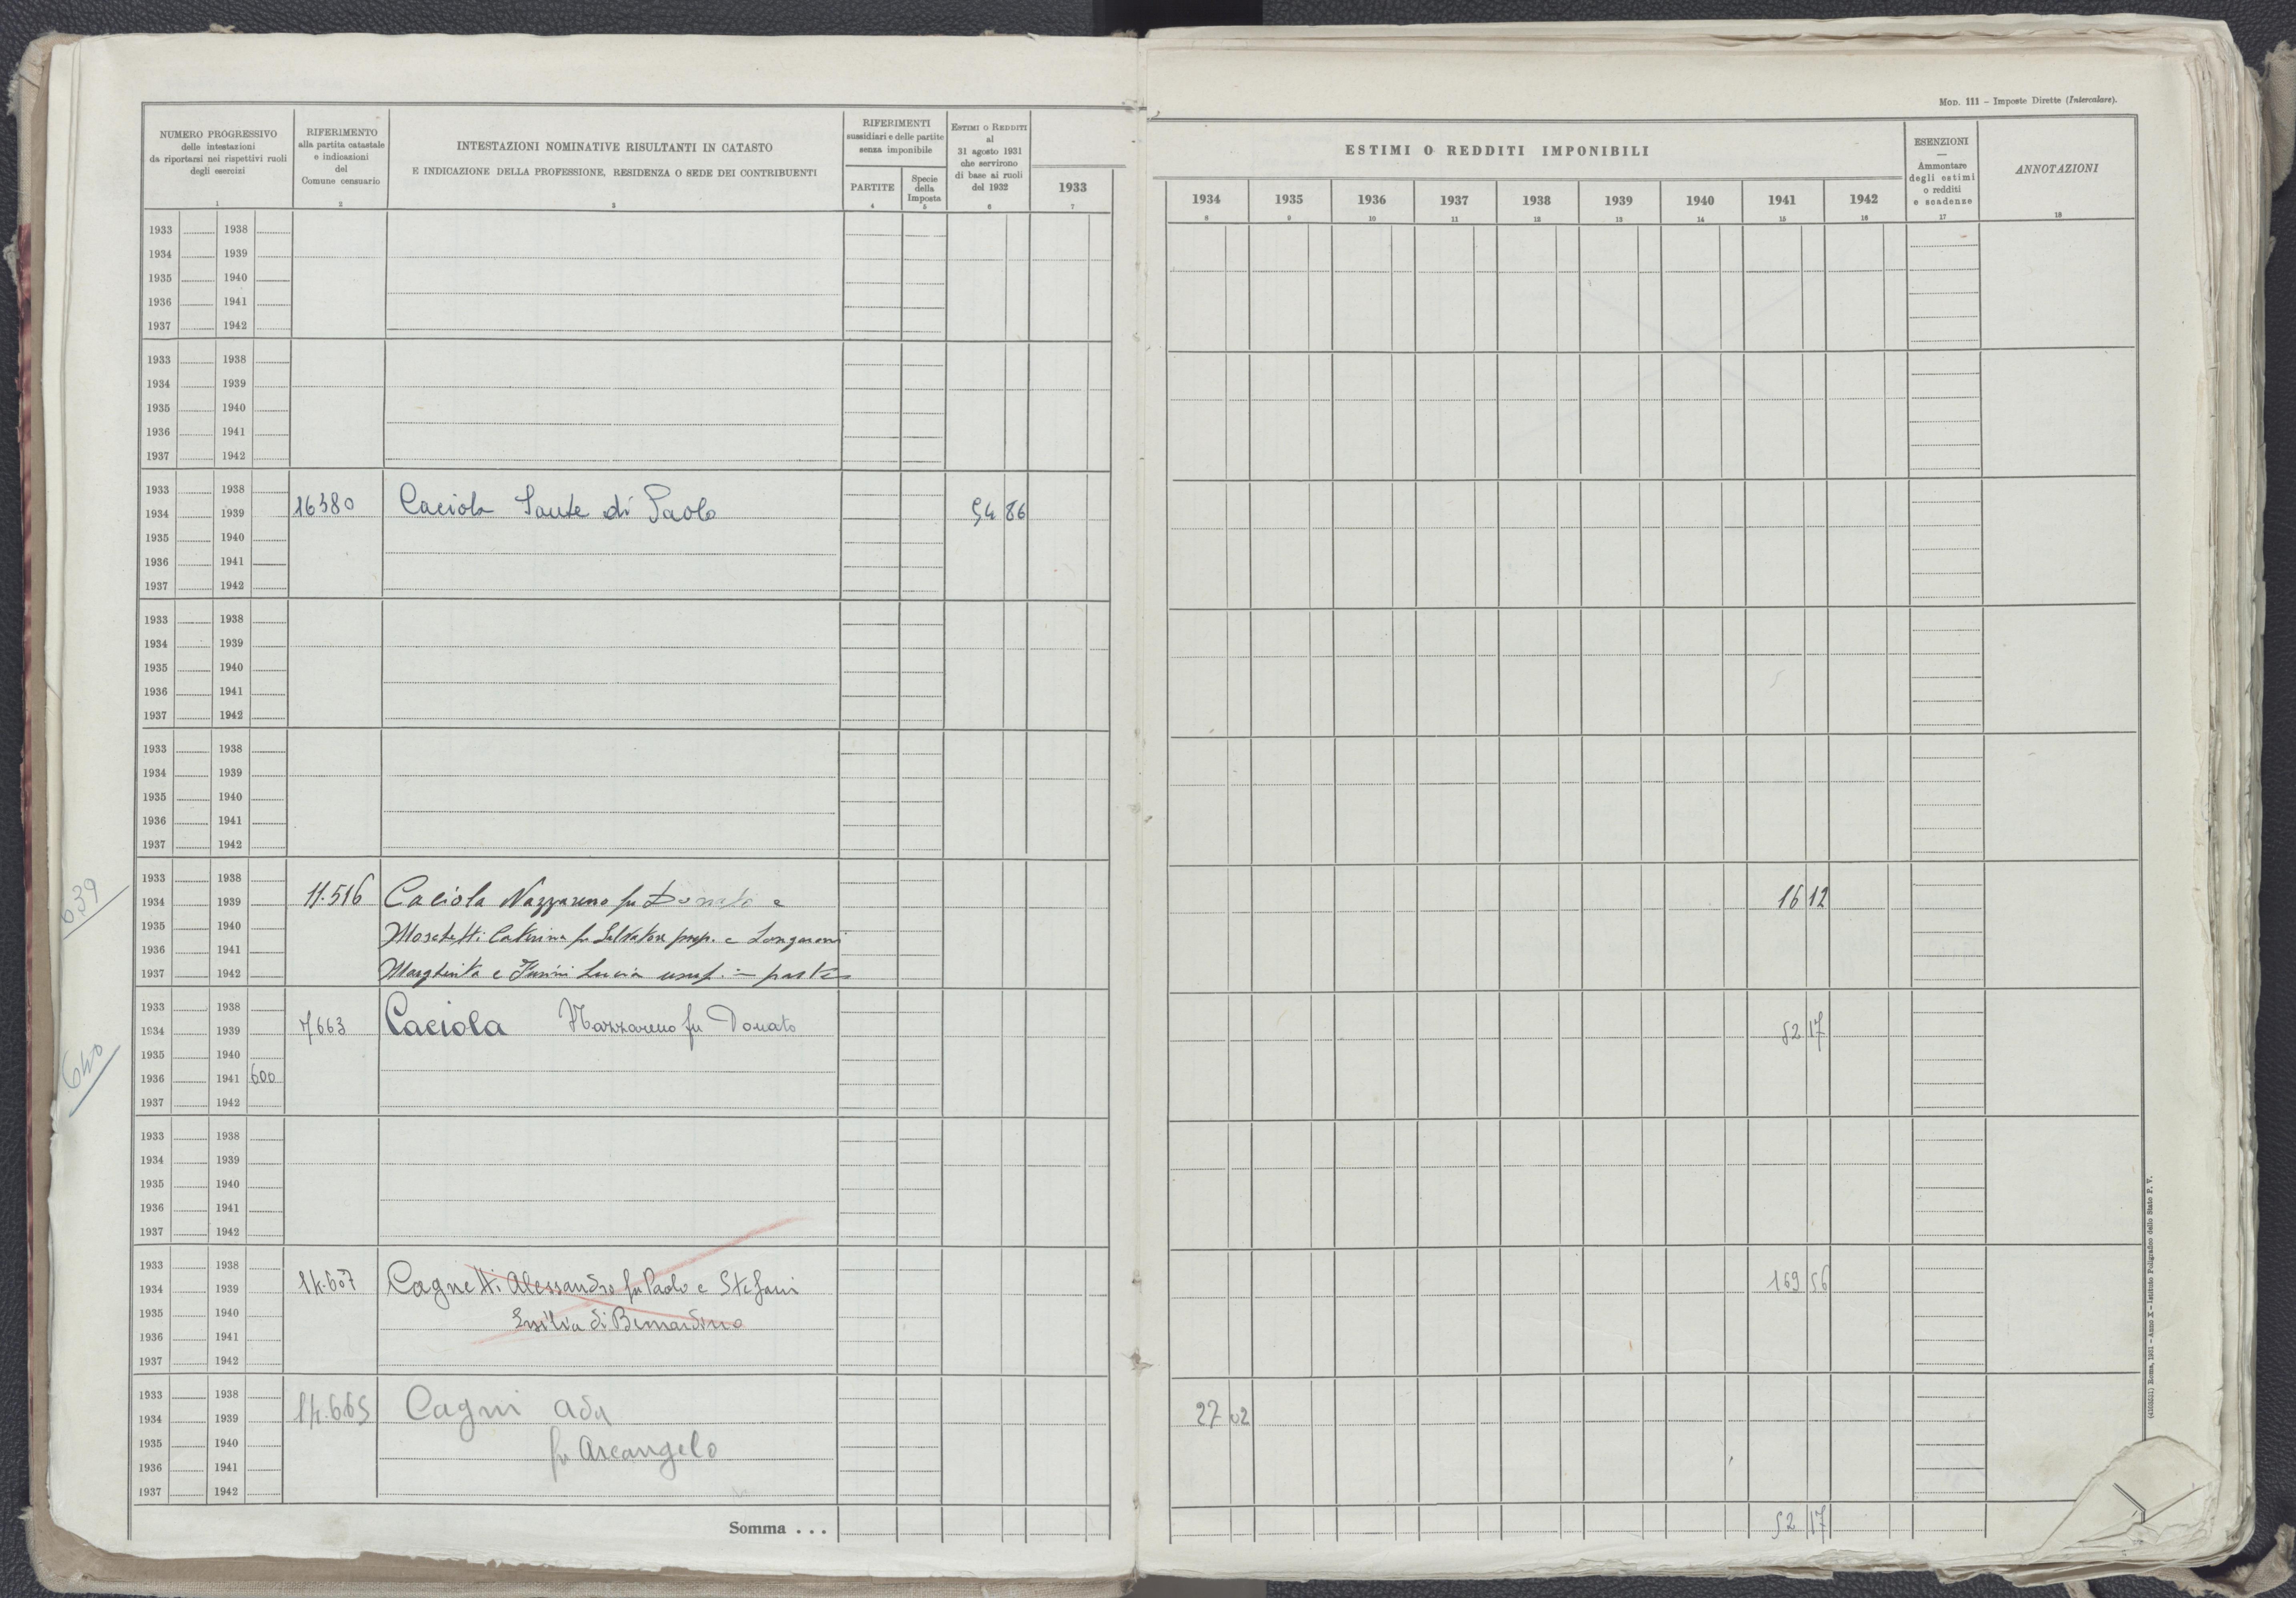 MOD. 111 – Imposte Dirette (Intercalare).
NUMERO PROGRESSIVO
delle intestazioni
da riportarsi nei rispettivi ruoli
degli esercizi
1
RIFERIMENTO
alla partita catastale
e indicazioni
del
Comune censuario
2
INTESTAZIONI NOMINATIVE RISULTANTI IN CATASTO
E INDICAZIONE DELLA PROFESSIONE, RESIDENZA O SEDE DEI CONTRIBUENTI
3
RIFERIMENTI
sussidiari e delle partite
senza imponibile
PARTITE
4
Specie
della
Imposta
5
ESTIMI O REDDITI
al
31 agosto 1931
che servirono
di base ai ruoli
del 1932
6
1933
7
ESTIMI O REDDITI IMPONIBILI
1934 1935 1936 1937 1938 1939 1940 1941 1942
8 9 10 11 12 13 14 15 16
ESENZIONI
—
Ammontare
degli estimi
o redditi
e scadenze
17
ANNOTAZIONI
18
1933 1938
1934 1939
1935 1940
1936 1941
1937 1942
1933 1938
1934 1939
1935 1940
1936 1941
1937 1942
1933 1938
1934 1939 16380 Caciola Sante di Paolo 54 86
1935 1940
1936 1941
1937 1942
1933 1938
1934 1939
1935 1940
1936 1941
1937 1942
1933 1938
1934 1939
1935 1940
1936 1941
1937 1942
639
1933 1938
1934 1939 11.516 Caciola Nazzareno fu Donato e 16 12
1935 1940 Moschetti Caterina fu Salvatore prop. e
1936 1941
1937 1942 Margherita e Lucia usuf. – parte
640
1933 1938
1934 1939 7663 Caciola Nazzareno fu Donato 52 17
1935 1940
1936 1941 600
1937 1942
1933 1938
1934 1939
1935 1940
1936 1941
1937 1942
1933 1938
1934 1939 14.607 Cagnetti Alessandro fu Paolo e Stefani 169 56
1935 1940 Ersilia di Bernardino
1936 1941
1937 1942
1933 1938
1934 1939 14.665 Cagni Ada 27 02
1935 1940 fu Arcangelo
1936 1941
1937 1942
Somma . . . 52 17
Roma, 1931 – Anno X – Istituto Poligrafico dello Stato P. V.